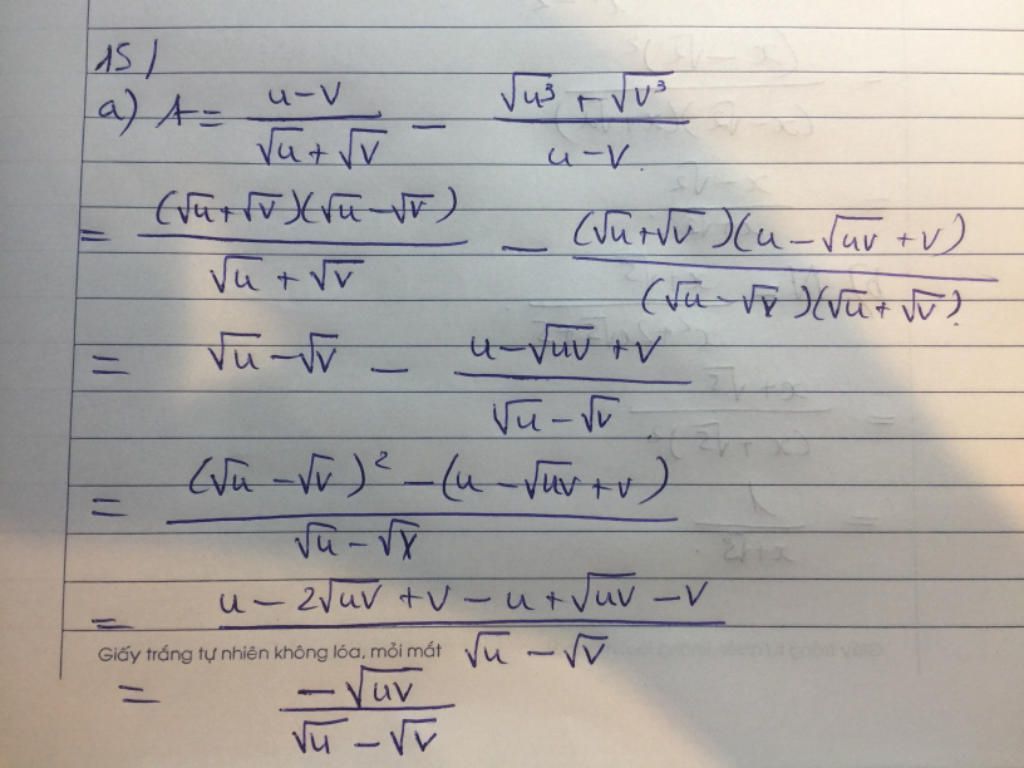 15/
a) A = (u-v)/(√u + √v) - (√u³ + √v³)/(u-v)
= ((√u+√v)(√u-√v))/(√u + √v) - ((√u+√v)(u-√uv+v))/((√u-√v)(√u+√v))
= √u-√v - (u-√uv+v)/(√u-√v)
= ((√u-√v)² -(u-√uv+v))/(√u-√v)
= (u-2√uv+v-u+√uv-v)/(√u-√v)
Giấy trắng tự nhiên không lóa, mỏi mắt
= (-√uv)/(√u-√v)